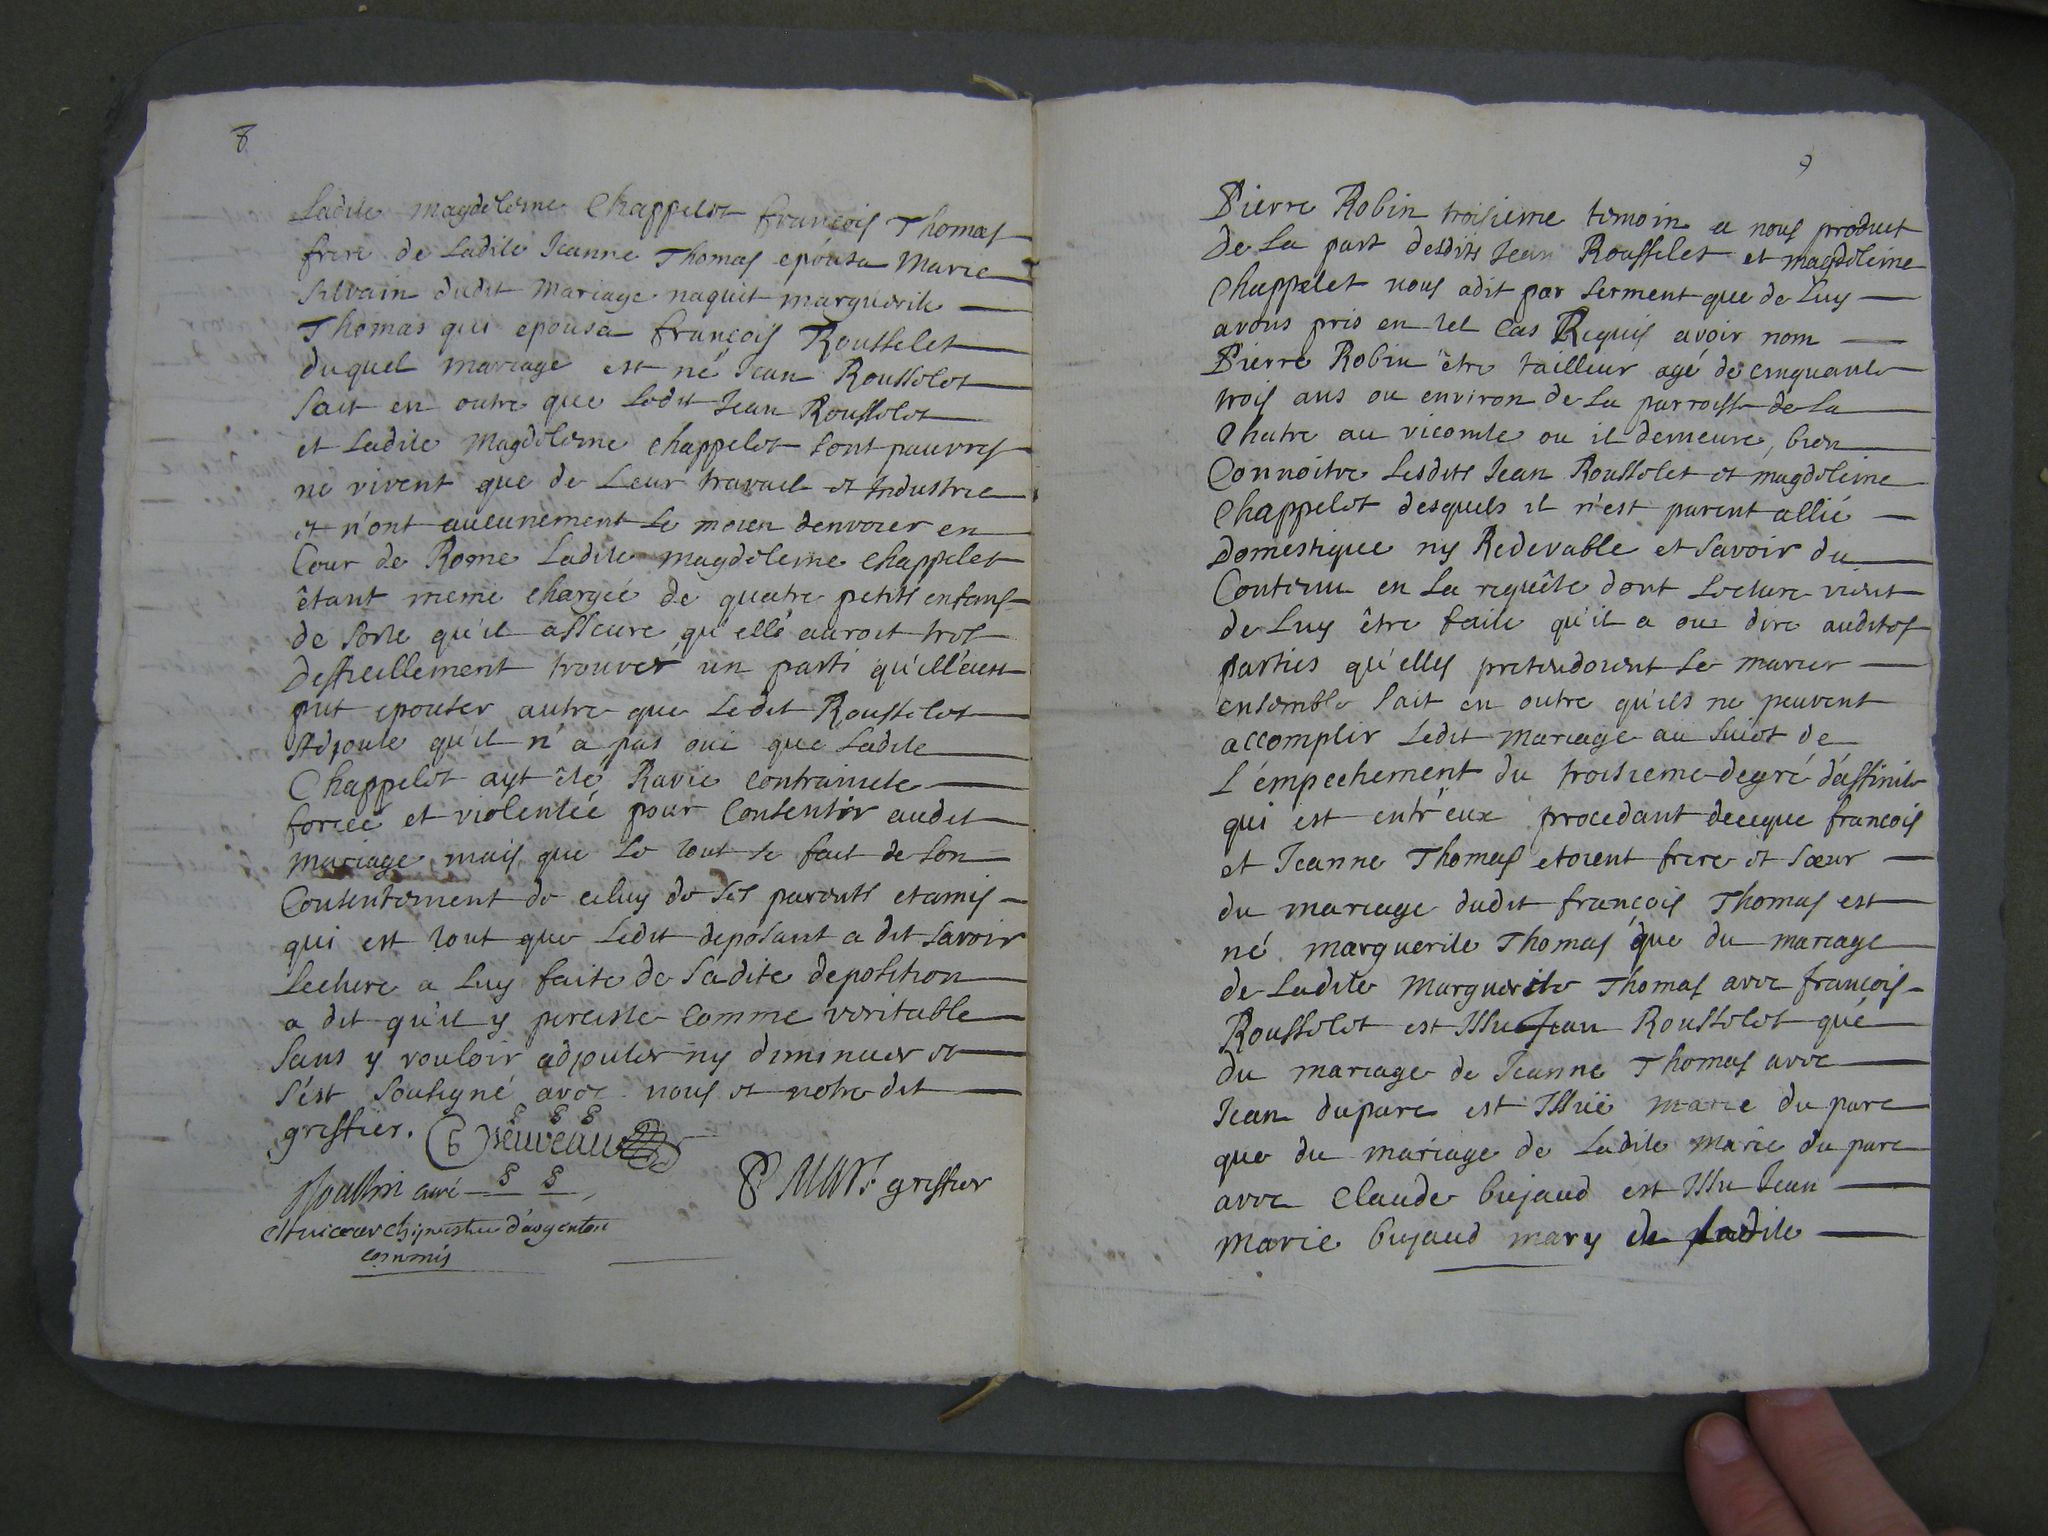 8
Ladite magdeleine Chappelet françois Thomas
frere de Ladite Jeanne Thomas epousa Marie
Silvain dudit Mariage naquit marguerite
Thomas qui epousa françois Rousselet
duquel mariage est né Jean Rousselet
Sait en outre que Ledit Jean Rousselet
et Ladite Magdeleine Chappelet sont pauvres
ne vivent que de Leur travail et Industrie
et n'ont aucunement le moien denvoier en
Cour de Rome Ladite magdeleine Chappelet
êtant meme chargée de quatre petits enfans
de sorte qu'il asseure qu'elle auroit trop
difficillement trouver un parti qu'ill'eust
put epouser autre que Ledit Rousselet
Adjoute qu'il n'a pas oui que Ladite
Chappelet ayt êté Ravie contrainte
forcée et violentée pour Consentir audit
mariage mais que Le tout se fait de son
Consentement de celuy de ses parents et amis
qui est tout que Ledit deposant a dit savoir
Lecture a Luy faite de sadite deposition
a dit qu'il y persiste Comme veritable
sans y vouloir adjouter ny diminuer et
s'est soutigné avec nous et notre dit
greffier.
curé
greffier
d'argenton
commis
9
Pierre Robin troisieme temoin a nous produit
de La part desdits Jean Rousselet et magdeleine
Chappelet nous adit par serment que de Luy
avons pris en tel Cas Requis avoir nom
Pierre Robin être tailleur agé de cinquante
trois ans ou environ de La parroisse de La
Chatre au vicomte ou il demeure, bien
Connoitre Lesdits Jean Rousselet et magdeleine
Chappelet desquels il n'est parent allié
Domestique ny Redevable et savoir du
Contenu en La requête dont Lecture vient
de Luy être faite qu'il a oui dire audites
parties qu'elles pretendoient se marier
ensemble sait en outre qu'ils ne peuvent
accomplir Ledit mariage au suiet de
L'émpechement du troisieme degré d'affinite
qui est entr'eux procedant deceque françois
et Jeanne Thomas etoient frere et sœur
du mariage dudit françois Thomas est
né marguerite Thomas que du mariage
de Ladite Marguerite Thomas avec françois
Rousselet est Issu Jean Rousselet que
du mariage de Jeanne Thomas avec
Jean duparc est Issuë marie du parc
que du mariage de Ladite Marie du parc
avec Claude bujaud est Issu Jean
Marie bujaud mary de Ladite